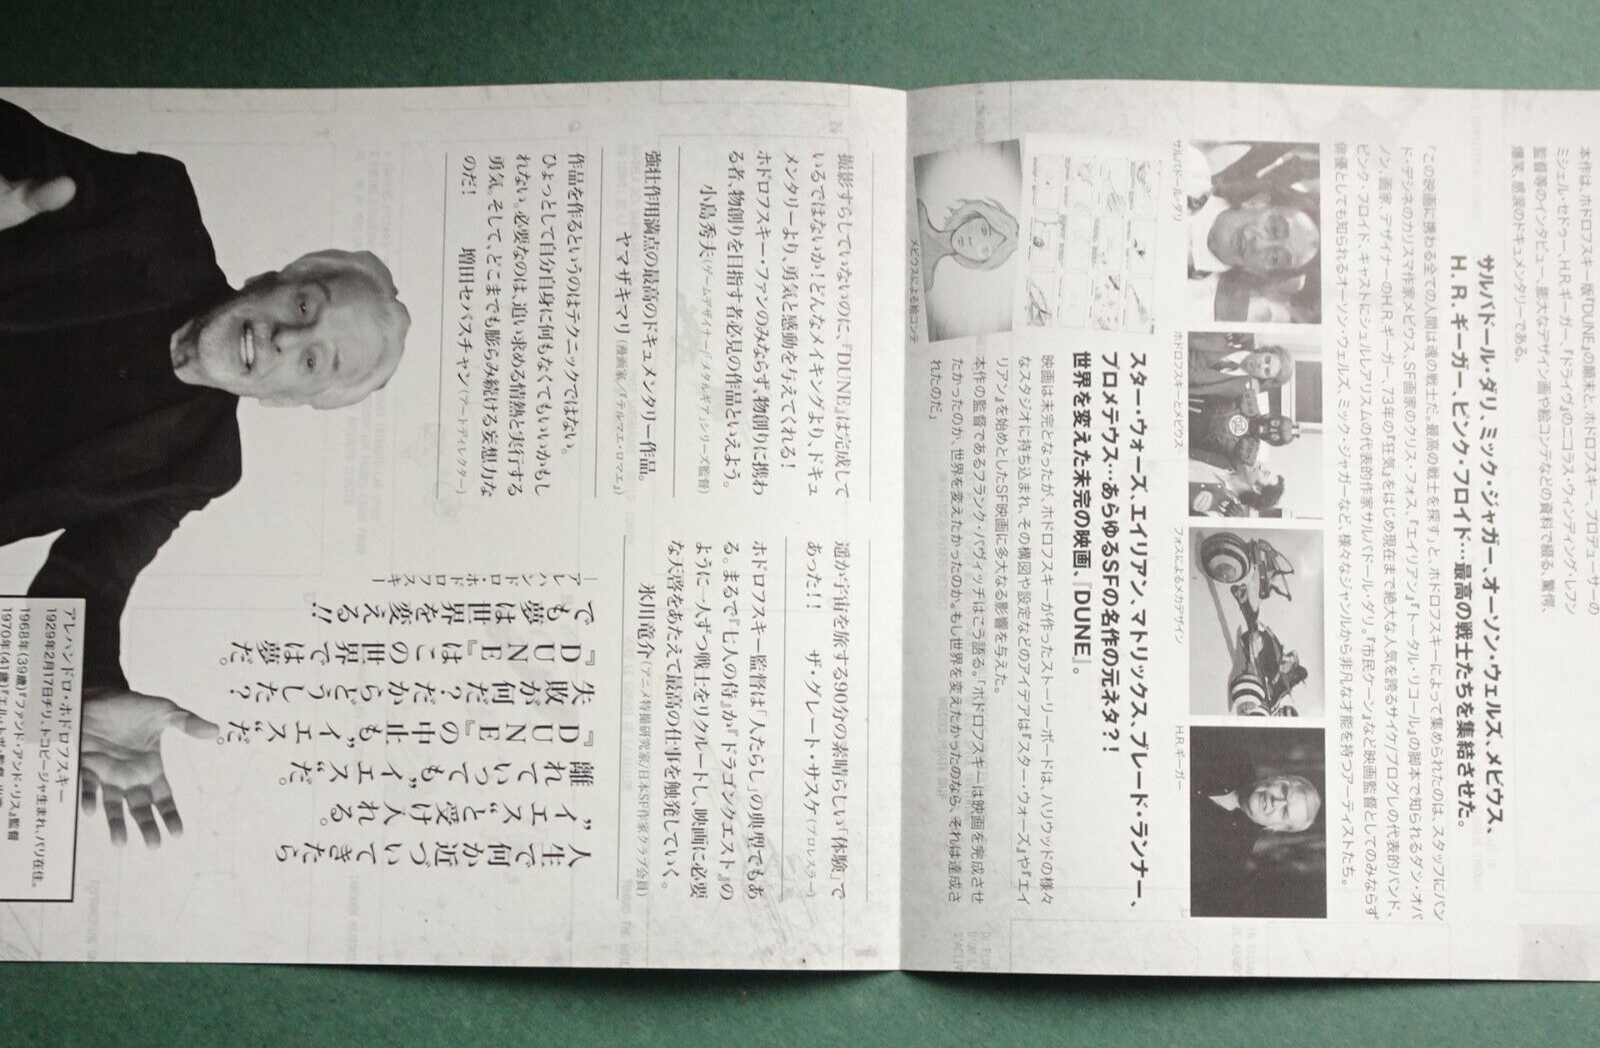 本作は、ホドロフスキー版『DUNE』の顛末と、ホドロフスキー、プロデューサーの
ミシェル・セドゥー、H.R.ギーガー、『ドライヴ』のニコラス・ウィンディング・レフン
監督等のインタビュー、膨大なデザイン画や絵コンテなどの資料で綴る、驚愕、
爆笑、感涙のドキュメンタリーである。
サルバドール・ダリ、ミック・ジャガー、オーソン・ウェルズ、メビウス、
H.R.ギーガー、ピンク・フロイド…最高の戦士たちを集結させた。
「この映画に携わる全ての人間は魂の戦士だ。最高の戦士を探す」と、ホドロフスキーによって集められたのは、スタッフにバン
ド・デシネのカリスマ作家メビウス、SF画家のクリス・フォス、『エイリアン』『トータル・リコール』の脚本で知られるダン・オバ
ノン、画家、デザイナーのH.R.ギーガー、73年の『狂気』をはじめ現在まで絶大な人気を誇るサイケ/プログレの代表的バンド、
ピンク・フロイド、キャストにシュルレアリスムの代表的作家サルバドール・ダリ、『市民ケーン』など映画監督としてのみならず
俳優としても知られるオーソン・ウェルズ、ミック・ジャガーなど、様々なジャンルから非凡な才能を持つアーティストたち。
サルバドール・ダリ
ホドロフスキーとメビウス
フォスによるメカデザイン
H.R.ギーガー
スター・ウォーズ、エイリアン、マトリックス、ブレード・ランナー、
プロメテウス…あらゆるSFの名作の元ネタ?!
世界を変えた未完の映画、『DUNE』。
映画は未完となったが、ホドロフスキーが作ったストーリーボードは、ハリウッドの様々
なスタジオに持ち込まれ、その構図や設定などのアイデアは『スター・ウォーズ』や『エイ
リアン』を始めとしたSF映画に多大なる影響を与えた。
本作の監督であるフランク・パヴィッチはこう語る。「ホドロフスキーは映画を完成させ
たかったのか、世界を変えたかったのか。もし世界を変えたかったのなら、それは達成さ
れたのだ」
メビウスによる絵コンテ
撮影すらしていないのに、『DUNE』は完成して
いるではないか!どんなメイキングより、ドキュ
メンタリーより、勇気と感動を与えてくれる!
ホドロフスキー・ファンのみならず、物創りに携わ
る者、物創りを目指す者必見の作品といえよう。
小島秀夫(ゲームデザイナー/『メタルギア』シリーズ監督)
強壮作用満点の最高のドキュメンタリー作品。
ヤマザキマリ(漫画家/『テルマエ・ロマエ』)
作品を作るというのはテクニックではない。
ひょっとして自分自身に何もなくてもいいかもし
れない。必要なのは、追い求める情熱と実行する
勇気。そして、どこまでも膨らみ続ける妄想力な
のだ!　増田セバスチャン(アートディレクター)
遥か宇宙を旅する90分の素晴らしい「体験」で
あった!!　ザ・グレート・サスケ(プロレスラー)
ホドロフスキー監督は「人たらし」の典型でもあ
る。まるで『七人の侍』か『ドラゴンクエスト』の
ように一人ずつ戦士をリクルートし、映画に必要
な天啓をあたえて最高の仕事を触発していく。
氷川竜介(アニメ特撮研究家/日本SF作家クラブ会員)
人生で何か近づいてきたら
“イエス“と受け入れる。
離れていっても“イエス“だ。
『DUNE』の中止も“イエス“だ
失敗が何だ?だからどうした?
『DUNE』はこの世界では夢だ。
でも夢は世界を変える!!
—アレハンドロ・ホドロフスキー
アレハンドロ・ホドロフスキー
1929年2月17日チリ、トコピージャ生まれ、パリ在住。
1968年(39歳)『ファンド・アンド・リス』監督
1970年(41歳)『エル・トポ』監督